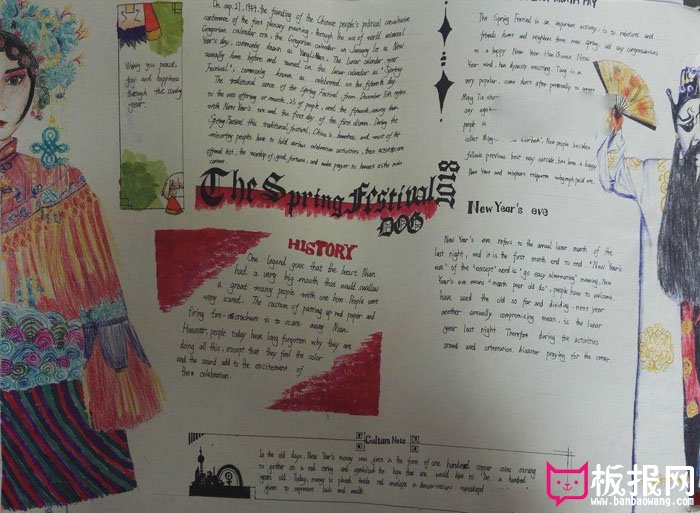 Wishing you peace,
joy and happiness
through the coming
year.
On sep. 21, 1949, the founding of the Chinese people's political consultative
conference of the first plenary meeting, through the use of world universal
Gregorian calendar era, the Gregorian calendar on January 1st a New
Year's day, commonly known as Yangli Nian. The lunar year
usually have before and
Festival", commonly known as celebrated on the fifteenth day
The traditional sense of the Spring Festival from December 8th refers
to the wax offering or month, 23 of people, until the fifteenth, among them
with New Year's eve and the first day of the first climax. During the
Spring Festival this traditional festival, China's
minority peoples have to hold various celebration activities, these activities are
offered his, the worship of good fortune, and make prayer to harvest as the main
content
The Spring Festival
DOG
2018
PAY
The Spring Festival is an important activity, is to relatives and
friends home and neighbors there may spring, old say congratulations
to a happy New Year. Han Chinese New
Year mind, han dynasty existing. Tang is a
very popular, some don't offer personally to
Ming Tie
cozy again
people in
called Ming
New people besides
follows previous best may outside, has been a happy
New Year and telephone telegram telegraph paid etc.
New Year's eve
New Year's eve refers to the annual lunar month of the
last night, and it is the first month end to end. "New Year's
eve" of the "except" word is "go easy alternating" meaning, New
Year's eve means "month poor old do", people have to welcome,
have used the old so far and dividing, next year
another annually compromising mean, is the lunar
year last night. Therefore during the activities
around used extermination, disaster praying for the center.
HISTORY
One legend goes that the beast Nian
had a very big mouth that would swallow
a great many people with one bite. People were
very scared. The custom of putting up red paper and
firing fire-crackers is to scare away Nian.
However, people today have long forgotten why they are
doing all this, except that they feel the color
and the sound add to the excitement of
the celebration.
Culture Note
In the old days, New Year's money was given in the form of one hundred copper coins strung
together on a red string and symbolized the hope that one would live to be a hundred
years old. Today, money is placed inside red envelopes in denominations considered
given to represent luck and wealth.
板报网
www.banbaowang.com